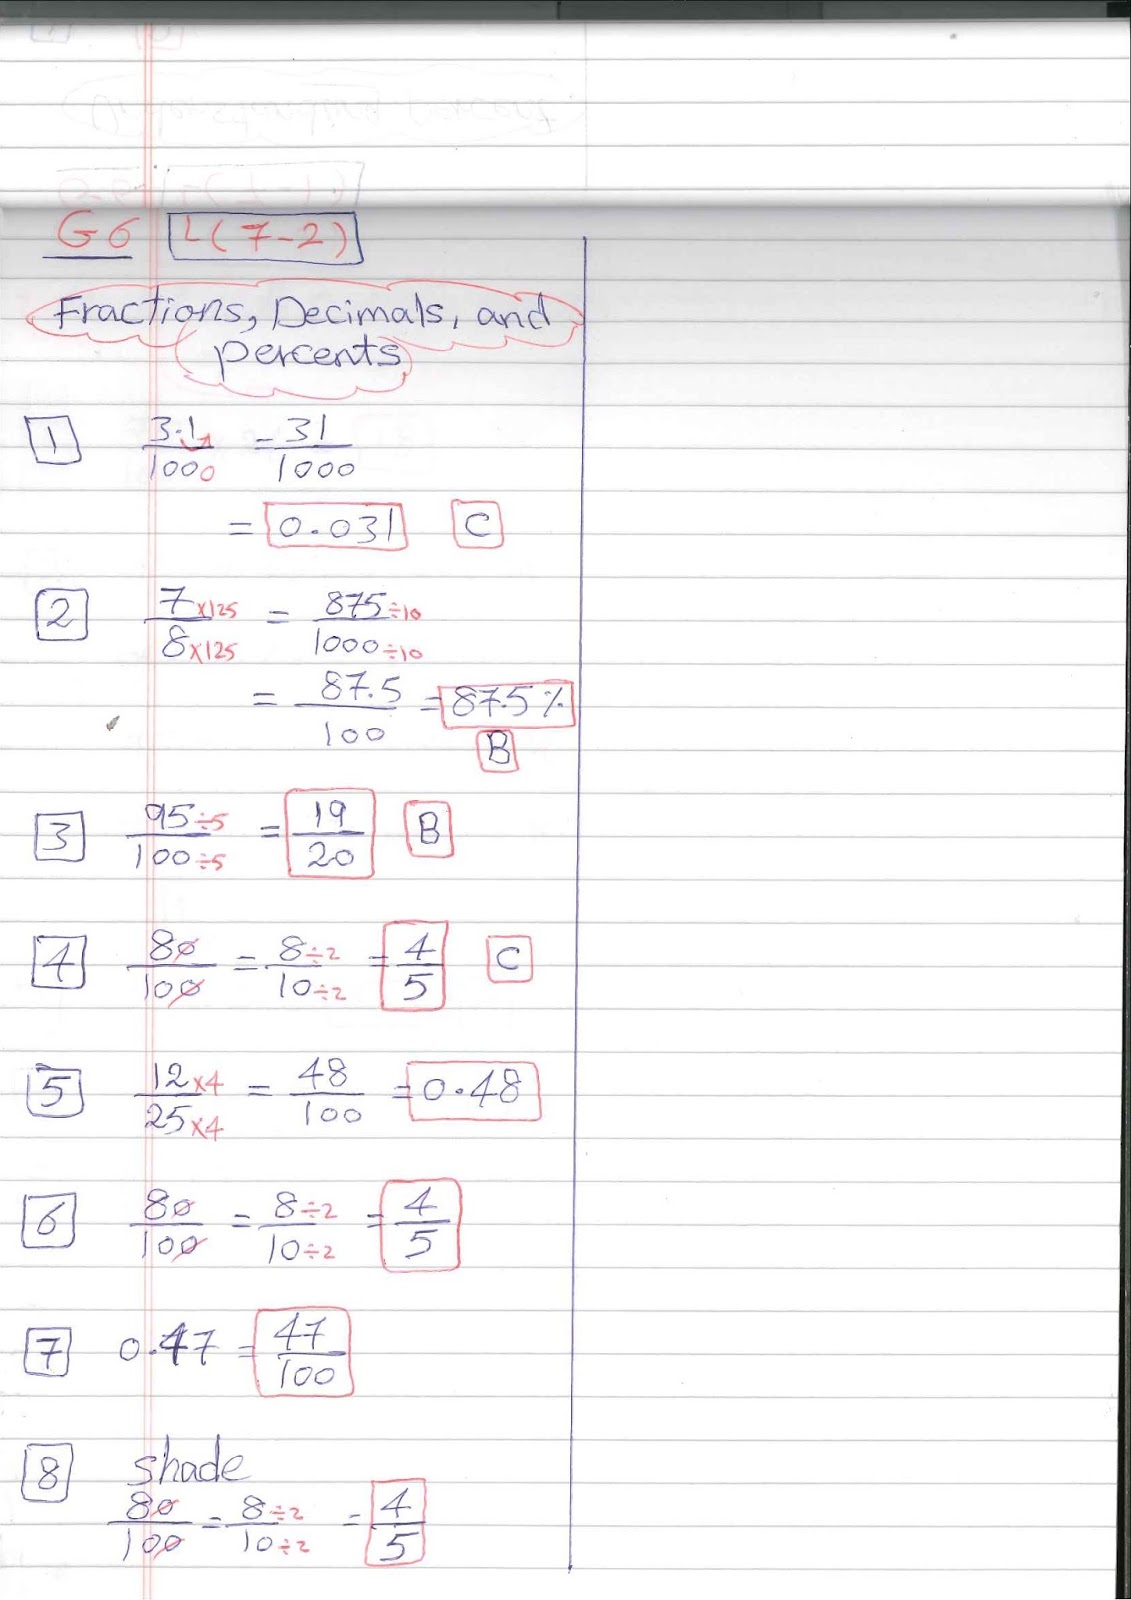 G6 L(7-2)
Fractions, Decimals, and
percents
1 3.1/1000 = 31/1000
= 0.031 C
2 7×125/8×125 = 875÷10/1000÷10
= 87.5/100 = 87.5%
B
3 95÷5/100÷5 = 19/20 B
4 80/100 = 8÷2/10÷2 = 4/5 C
5 12×4/25×4 = 48/100 = 0.48
6 80/100 = 8÷2/10÷2 = 4/5
7 0.47 = 47/100
8 shade
80/100 = 8÷2/10÷2 = 4/5